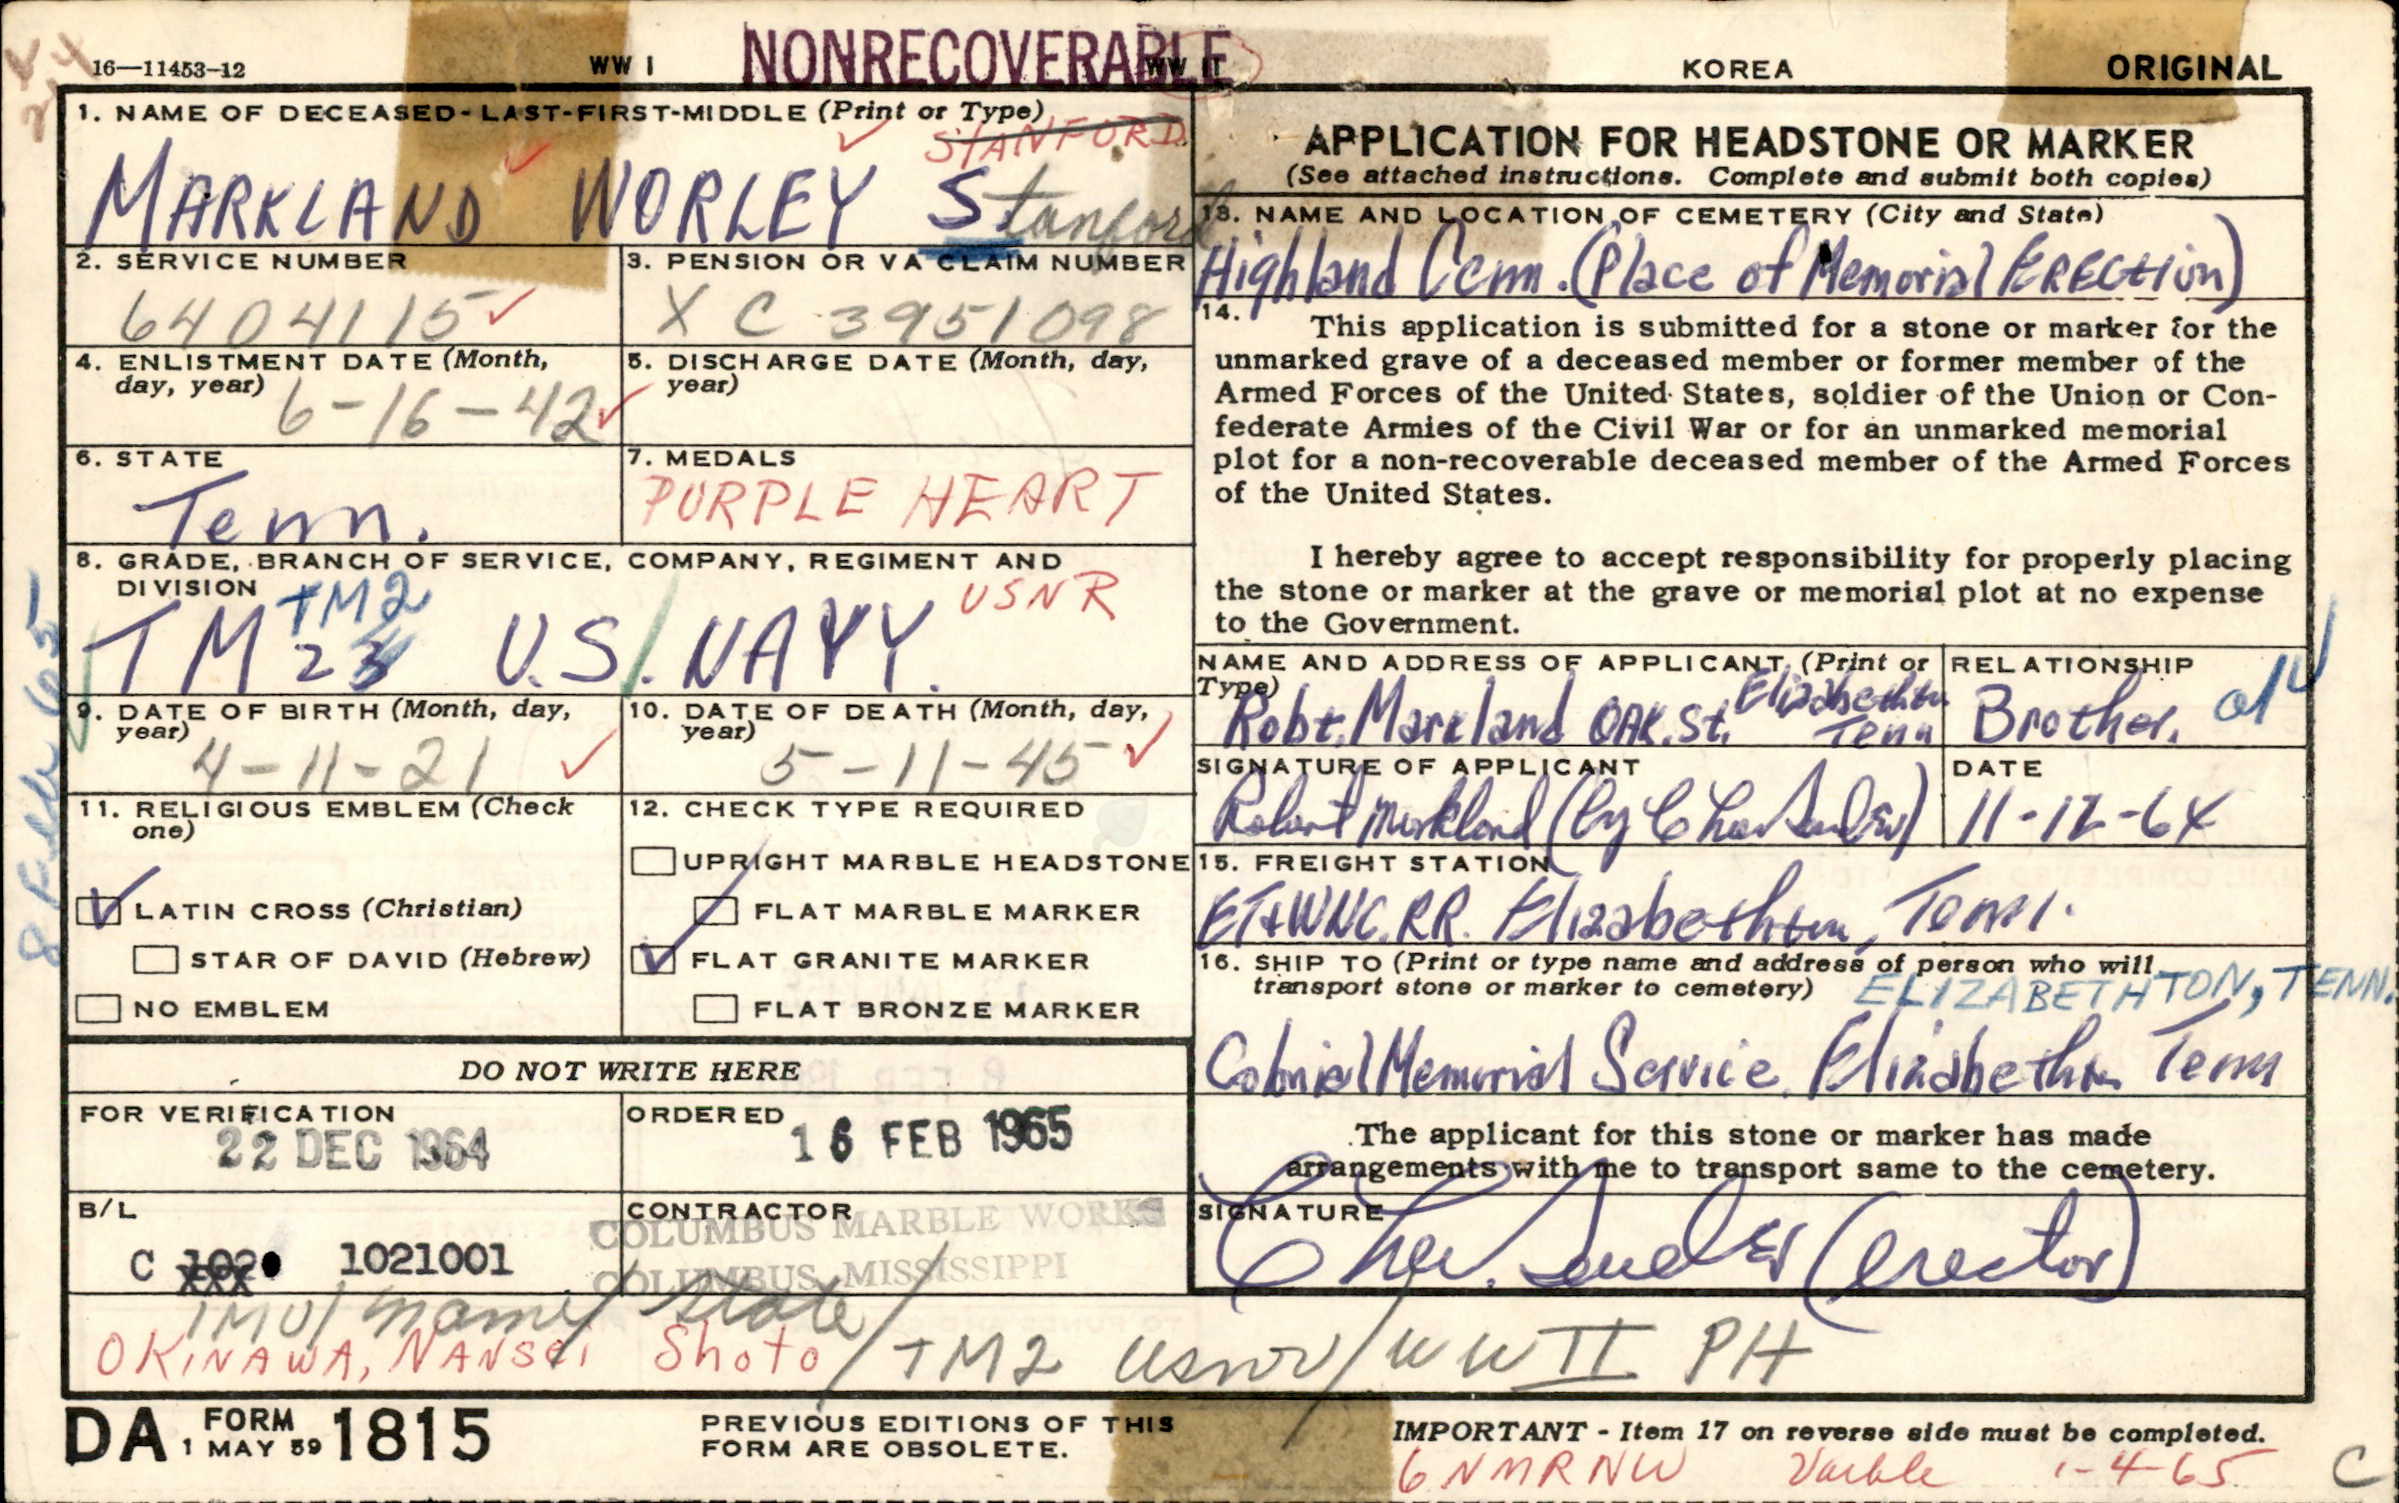 16—11453-12 WW I NONRECOVERABLE WW II KOREA ORIGINAL
1. NAME OF DECEASED - LAST-FIRST-MIDDLE (Print or Type)
STANFORD
MARKLAND WORLEY Stanford
2. SERVICE NUMBER
6404115
3. PENSION OR VA CLAIM NUMBER
XC 3951098
4. ENLISTMENT DATE (Month, day, year)
6-16-42
5. DISCHARGE DATE (Month, day, year)
6. STATE
Tenn.
7. MEDALS
PURPLE HEART
8. GRADE, BRANCH OF SERVICE, COMPANY, REGIMENT AND
DIVISION TM2 USNR
TM 23 U.S. NAVY.
9. DATE OF BIRTH (Month, day, year)
4-11-21
10. DATE OF DEATH (Month, day, year)
5-11-45
11. RELIGIOUS EMBLEM (Check one)
LATIN CROSS (Christian)
STAR OF DAVID (Hebrew)
NO EMBLEM
12. CHECK TYPE REQUIRED
UPRIGHT MARBLE HEADSTONE
FLAT MARBLE MARKER
FLAT GRANITE MARKER
FLAT BRONZE MARKER
DO NOT WRITE HERE
FOR VERIFICATION
22 DEC 1964
ORDERED
16 FEB 1965
B/L
C 1021001
CONTRACTOR
COLUMBUS MARBLE WORKS
COLUMBUS, MISSISSIPPI
APPLICATION FOR HEADSTONE OR MARKER
(See attached instructions. Complete and submit both copies)
13. NAME AND LOCATION OF CEMETERY (City and State)
Highland Cem. (Place of Memorial ERECtion)
14.
This application is submitted for a stone or marker for the
unmarked grave of a deceased member or former member of the
Armed Forces of the United States, soldier of the Union or Con-
federate Armies of the Civil War or for an unmarked memorial
plot for a non-recoverable deceased member of the Armed Forces
of the United States.
I hereby agree to accept responsibility for properly placing
the stone or marker at the grave or memorial plot at no expense
to the Government.
NAME AND ADDRESS OF APPLICANT (Print or Type)
Robt. Markland OAK. St. Elizabethton Tenn
RELATIONSHIP
Brother.
SIGNATURE OF APPLICANT
Robert Markland (by
DATE
11-12-64
15. FREIGHT STATION
ET&WNC. RR. Elizabethton, Tenn.
16. SHIP TO (Print or type name and address of person who will
transport stone or marker to cemetery) ELIZABETHTON, TENN.
Colonial Memorial Service Elizabethton Tenn
The applicant for this stone or marker has made
arrangements with me to transport same to the cemetery.
SIGNATURE
(erector)
name/ State/
OKINAWA, NANSEI Shoto / TM2 USNR / WW II PH
8 Feb 65
DA FORM 1 MAY 59 1815
PREVIOUS EDITIONS OF THIS
FORM ARE OBSOLETE.
IMPORTANT - Item 17 on reverse side must be completed.
6NMRNW 1-4-65 C